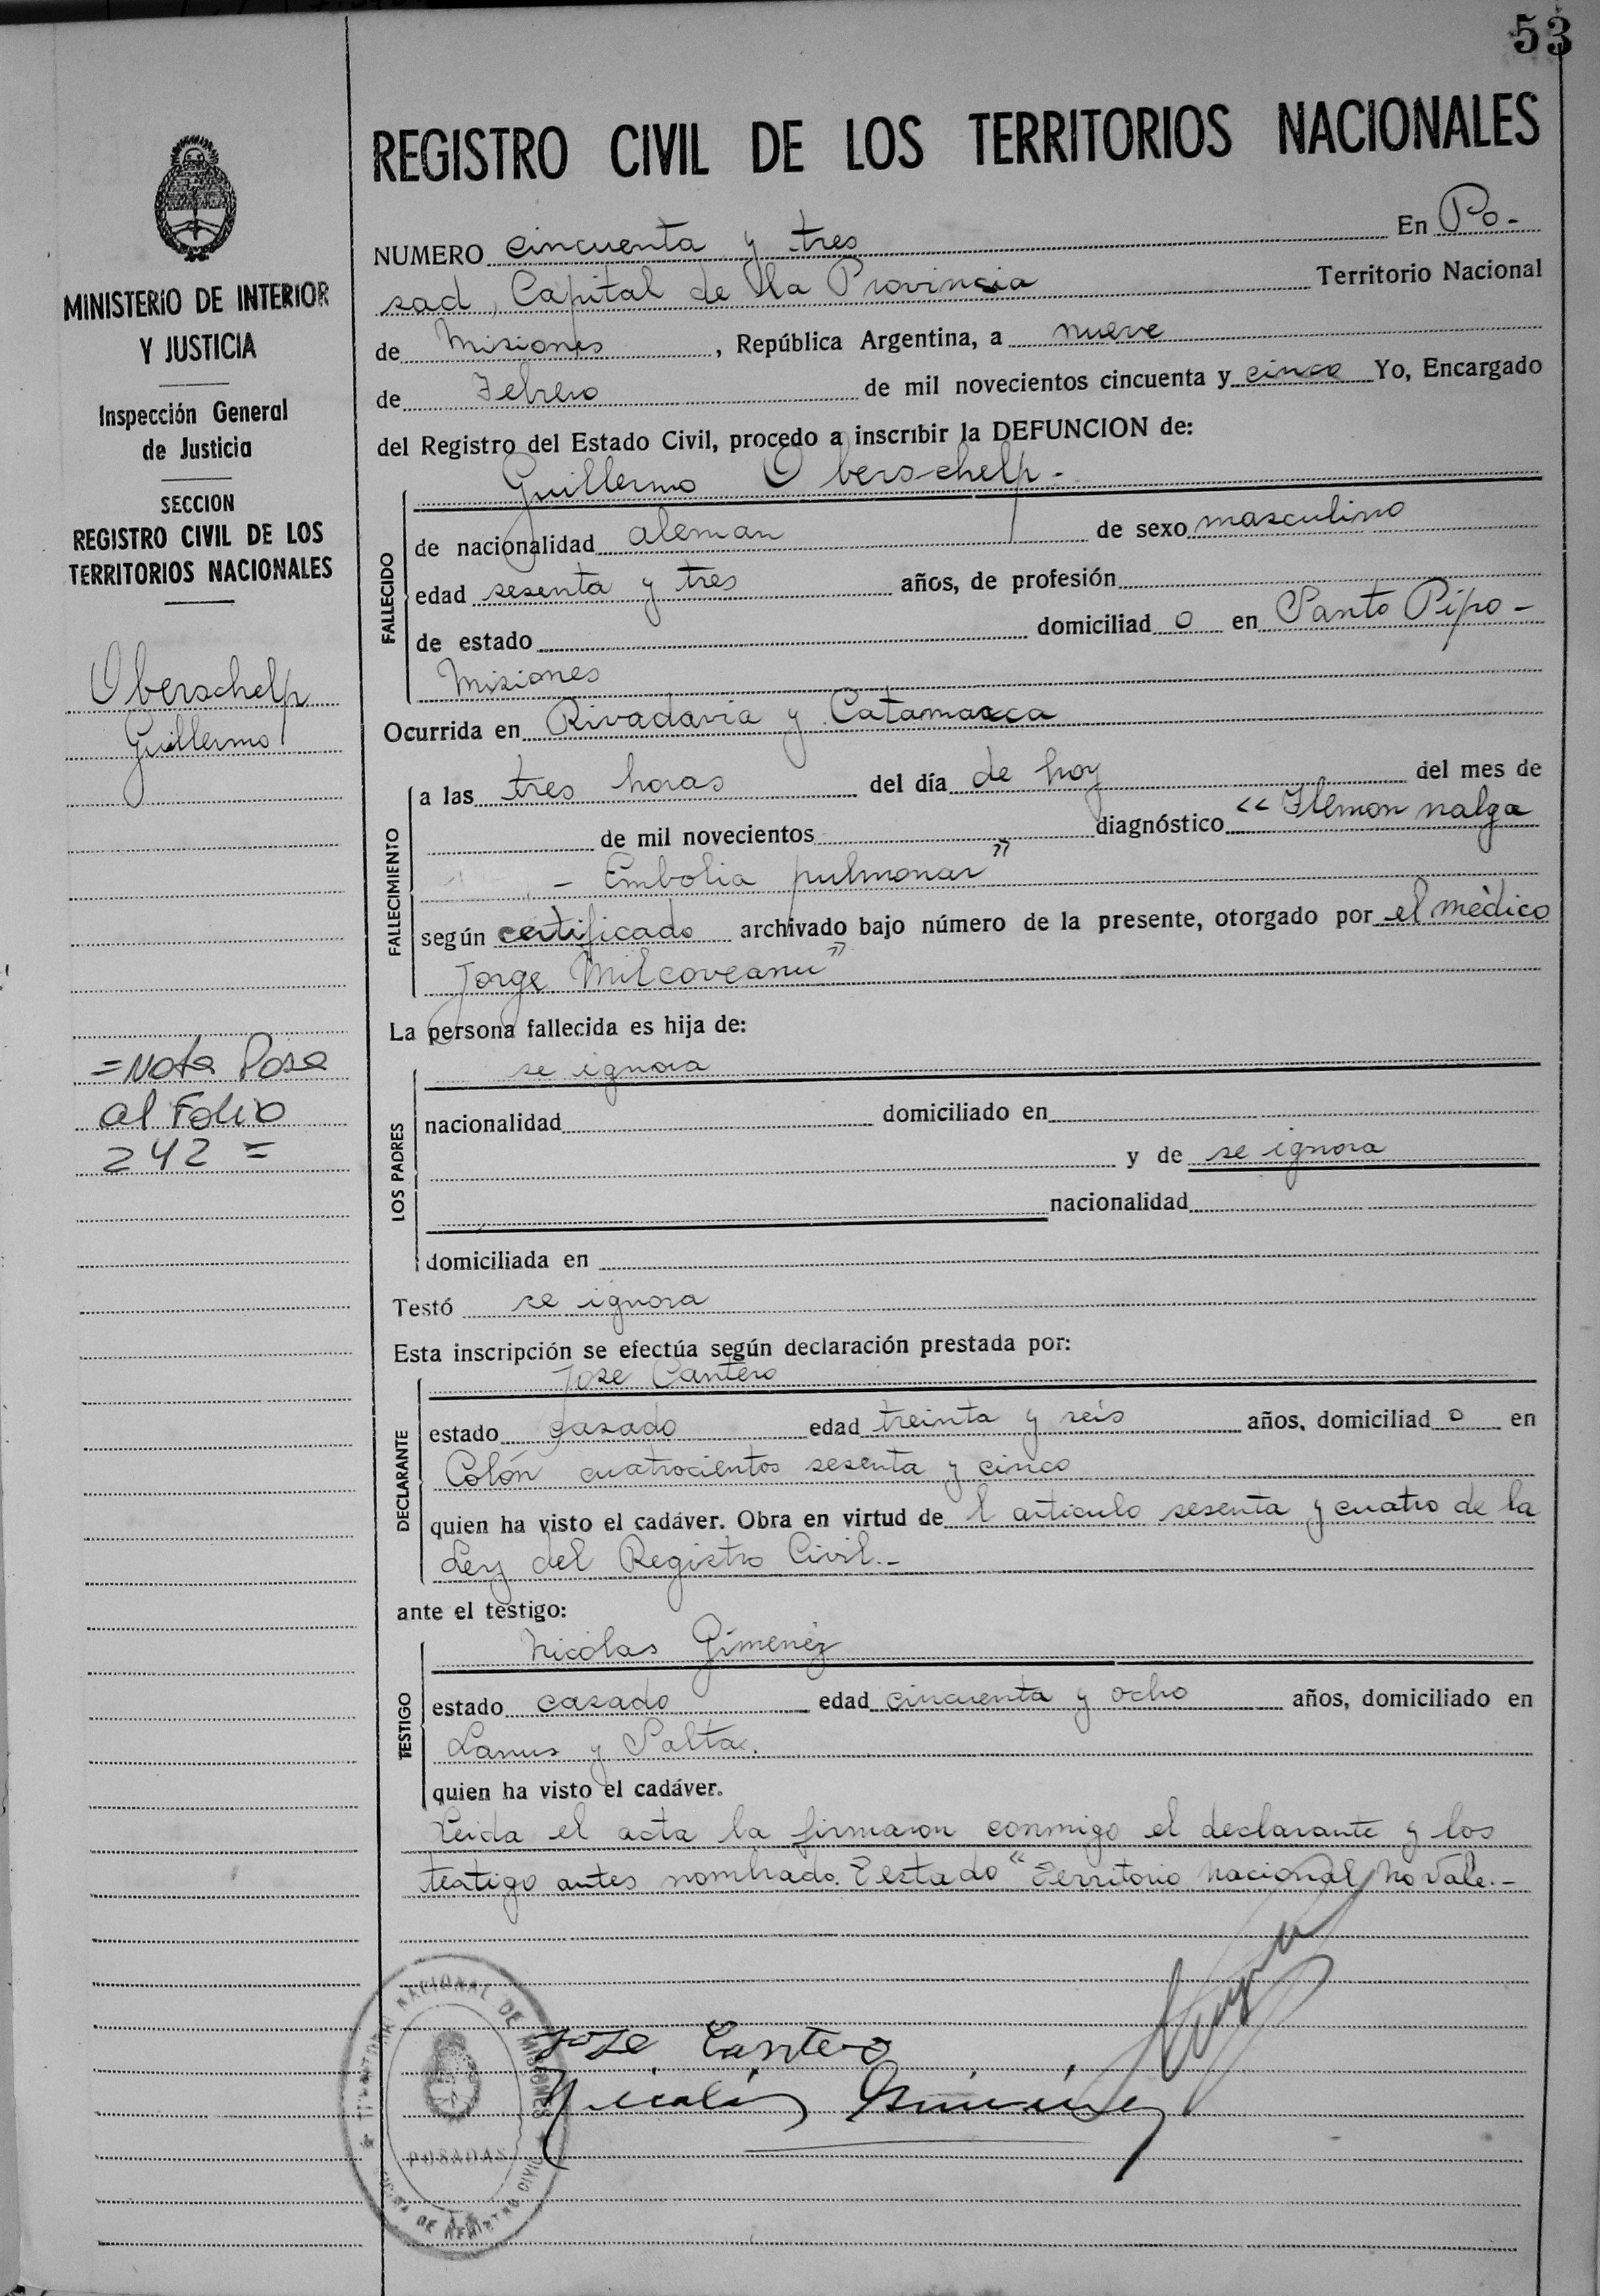 53
REGISTRO CIVIL DE LOS TERRITORIOS NACIONALES
MINISTERIO DE INTERIOR
Y JUSTICIA
Inspección General
de Justicia
SECCION
REGISTRO CIVIL DE LOS
TERRITORIOS NACIONALES
Oberschelp
Guillermo
=Nota Pasa
al Folio
242=
NUMERO cincuenta y tres En Po-
sad, Capital de la Provincia Territorio Nacional
de Misiones, República Argentina, a nueve
de Febrero de mil novecientos cincuenta y cinco Yo, Encargado
del Registro del Estado Civil, procedo a inscribir la DEFUNCION de:
Guillermo Oberschelp-
FALLECIDO
de nacionalidad aleman de sexo masculino
edad sesenta y tres años, de profesión
de estado domiciliad o en Santo Pipo-
Misiones
Ocurrida en Rivadavia y Catamarca
FALLECIMIENTO
a las tres horas del día de hoy del mes de
de mil novecientos diagnóstico "Flemon nalga
- Embolia pulmonar"
según certificado archivado bajo número de la presente, otorgado por el médico
Jorge Milcoveanu"
La persona fallecida es hija de:
LOS PADRES
se ignora
nacionalidad domiciliado en
y de se ignora
nacionalidad
domiciliada en
Testó se ignora
Esta inscripción se efectúa según declaración prestada por:
DECLARANTE
Jose Cantero
estado casado edad treinta y seis años, domiciliad o en
Colón cuatrocientos sesenta y cinco
quien ha visto el cadáver. Obra en virtud de l articulo sesenta y cuatro de la
Ley del Registro Civil.-
ante el testigo:
TESTIGO
Nicolas Gimenez
estado casado edad cincuenta y ocho años, domiciliado en
Lanus y Salta.
quien ha visto el cadáver.
Leida el acta la firmaron conmigo el declarante y los
testigo antes nombrado. Testado "Territorio Nacional No Vale.-
Jose Cantero
Nicolás Gimenez
NACIONAL DE MISIONES
POSADAS
DE REGISTRO CIVIL